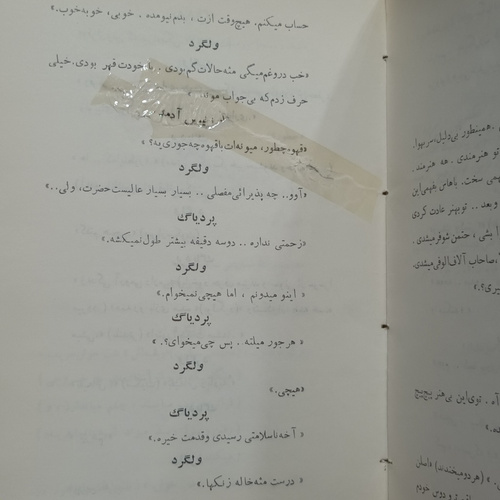 حساب میکنم. هیچوقت ازت، بدم نیومده. خوبی، خوبه خوب.»
ولگرد
«خب دروغم میگی مثه حالات گم بودی. با خودت قهر بودی. خیلی
حرف زدم که بی جواب
آدمک
«قهوه چطور، میونه ات با قهوه چه جوریه؟»
ولگرد
«آوو.. چه پذیرائی مفصلی.. بسیار بسیار عالیست حضرت، ولی..»
پردیاگ
«زحمتی نداره.. دوسه دقیقه بیشتر طول نمیکشه.»
ولگرد
« اینو میدونم ، اما هیچی نمیخوام.»
پردیاگ
« هر جور میلته . پس چی میخوای؟. »
ولگرد
«هیچی.»
پردیاگ
« آخه ناسلامتی رسیدی وقدمت خیره.»
ولگرد
« درست مثه خاله زنکها.»
. همینطور بی دلیل، سربهوا.
تو هنرمندی . هه هنرمند .
همی سخت. با
و بعد .. تو بهتر عادت کردی
صاحاب آلاف الوفی میشدی.
یری؟.»
آه . توی این بی هنر پیچ پیچ
» (هر دو میخندند) «اصلن